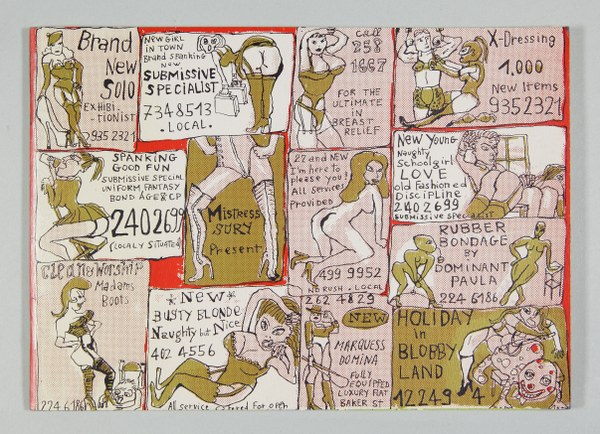 Brand
New
Solo
EXHIBI
-TIONIST
935 2321
NEW GIRL
IN TOWN
Brand Spanking
NEW
SUBMISSIVE
SPECIALIST
7348513
.LOCAL.
call
258
1667
FOR THE
ULTIMATE
IN
BREAST
RELIEF
X-Dressing
1.000
New Items
935 2321
SPANKING
GOOD FUN
SUBMISSIVE SPECIAL
UNIFORM, FANTASY
BOND AGE & CP
2402699
(LOCALY SITUATED)
MISTRESS
SURY
Present
22 and NEW
I'm here to
please you!
All Services
Provided
499 9952
NR RUSH. LOCAL
New Young
Naughty
Schoolgirl
LOVE
old Fashioned
DiscipLine
240 2699
RUBBER
BONDAGE
BY
DOMINANT
PAULA
224 6186
Madams
Boots
224 6186
*NEW*
BUSTY BLONDE
Naughty but Nice
402 4556
All service
For open
262 4829
NEW
MARQUESS
DOMINA
FULLY
EQUIPPED
LUXURY FLAT
BAKER ST
HOLIDAY
in
BLOBBY
LAND
12249 4